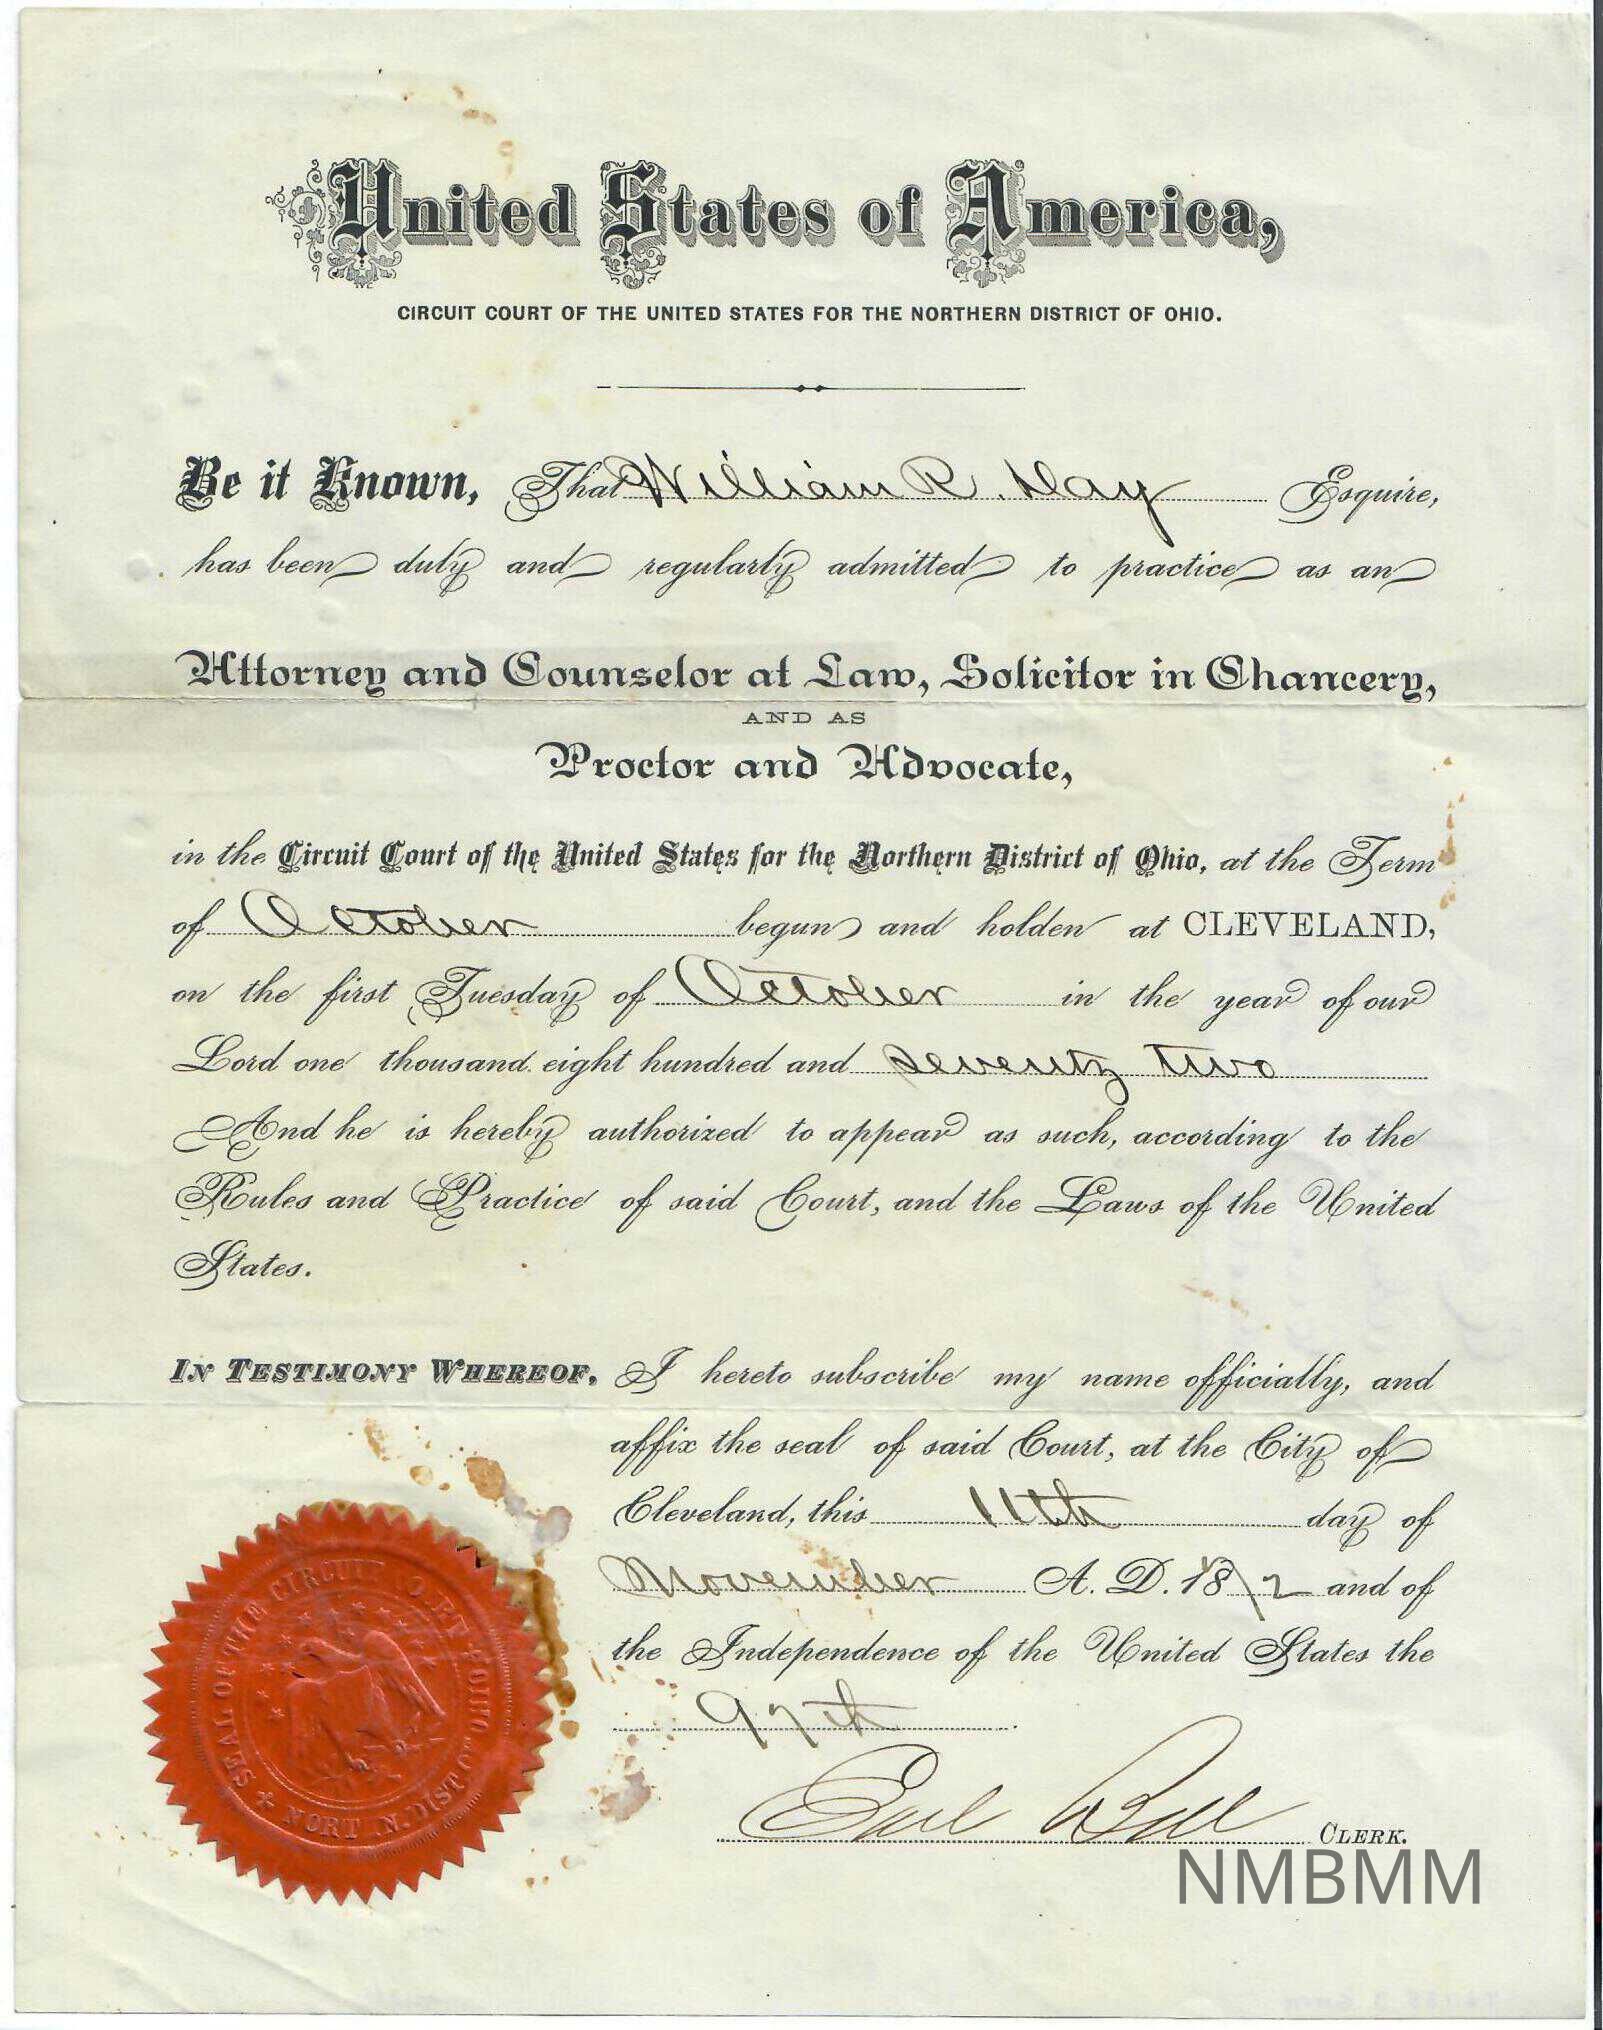 United States of America,
CIRCUIT COURT OF THE UNITED STATES FOR THE NORTHERN DISTRICT OF OHIO.
Be it Known, That William R. Day Esquire,
has been duly and regularly admitted to practice as an
Attorney and Counselor at Law, Solicitor in Chancery,
AND AS
Proctor and Advocate,
in the Circuit Court of the United States for the Northern District of Ohio, at the Term
of October begun and holden at CLEVELAND,
on the first Tuesday of October in the year of our
Lord one thousand eight hundred and seventy two
And he is hereby authorized to appear as such, according to the
Rules and Practice of said Court, and the Laws of the United
States.
IN TESTIMONY WHEREOF, I hereto subscribe my name officially, and
affix the seal of said Court, at the City of
Cleveland, this 11th day of
November A. D. 1872 and of
the Independence of the United States the
97th.
Earl Bill CLERK.
SEAL OF THE CIRCUIT
NORT N. DIST OF OHIO
NMBMM